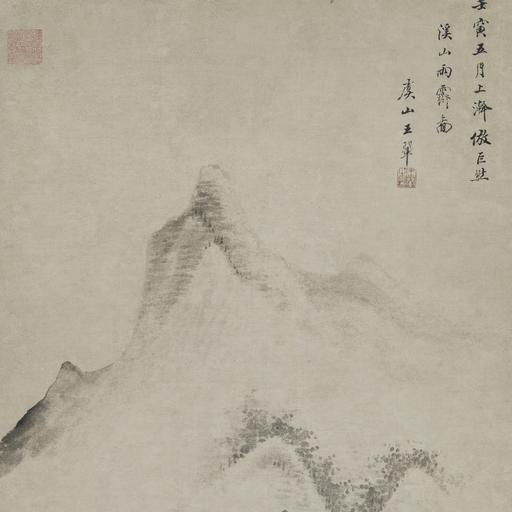 壬寅五月上澣倣巨然
溪山雨霽圖
虞山王翬